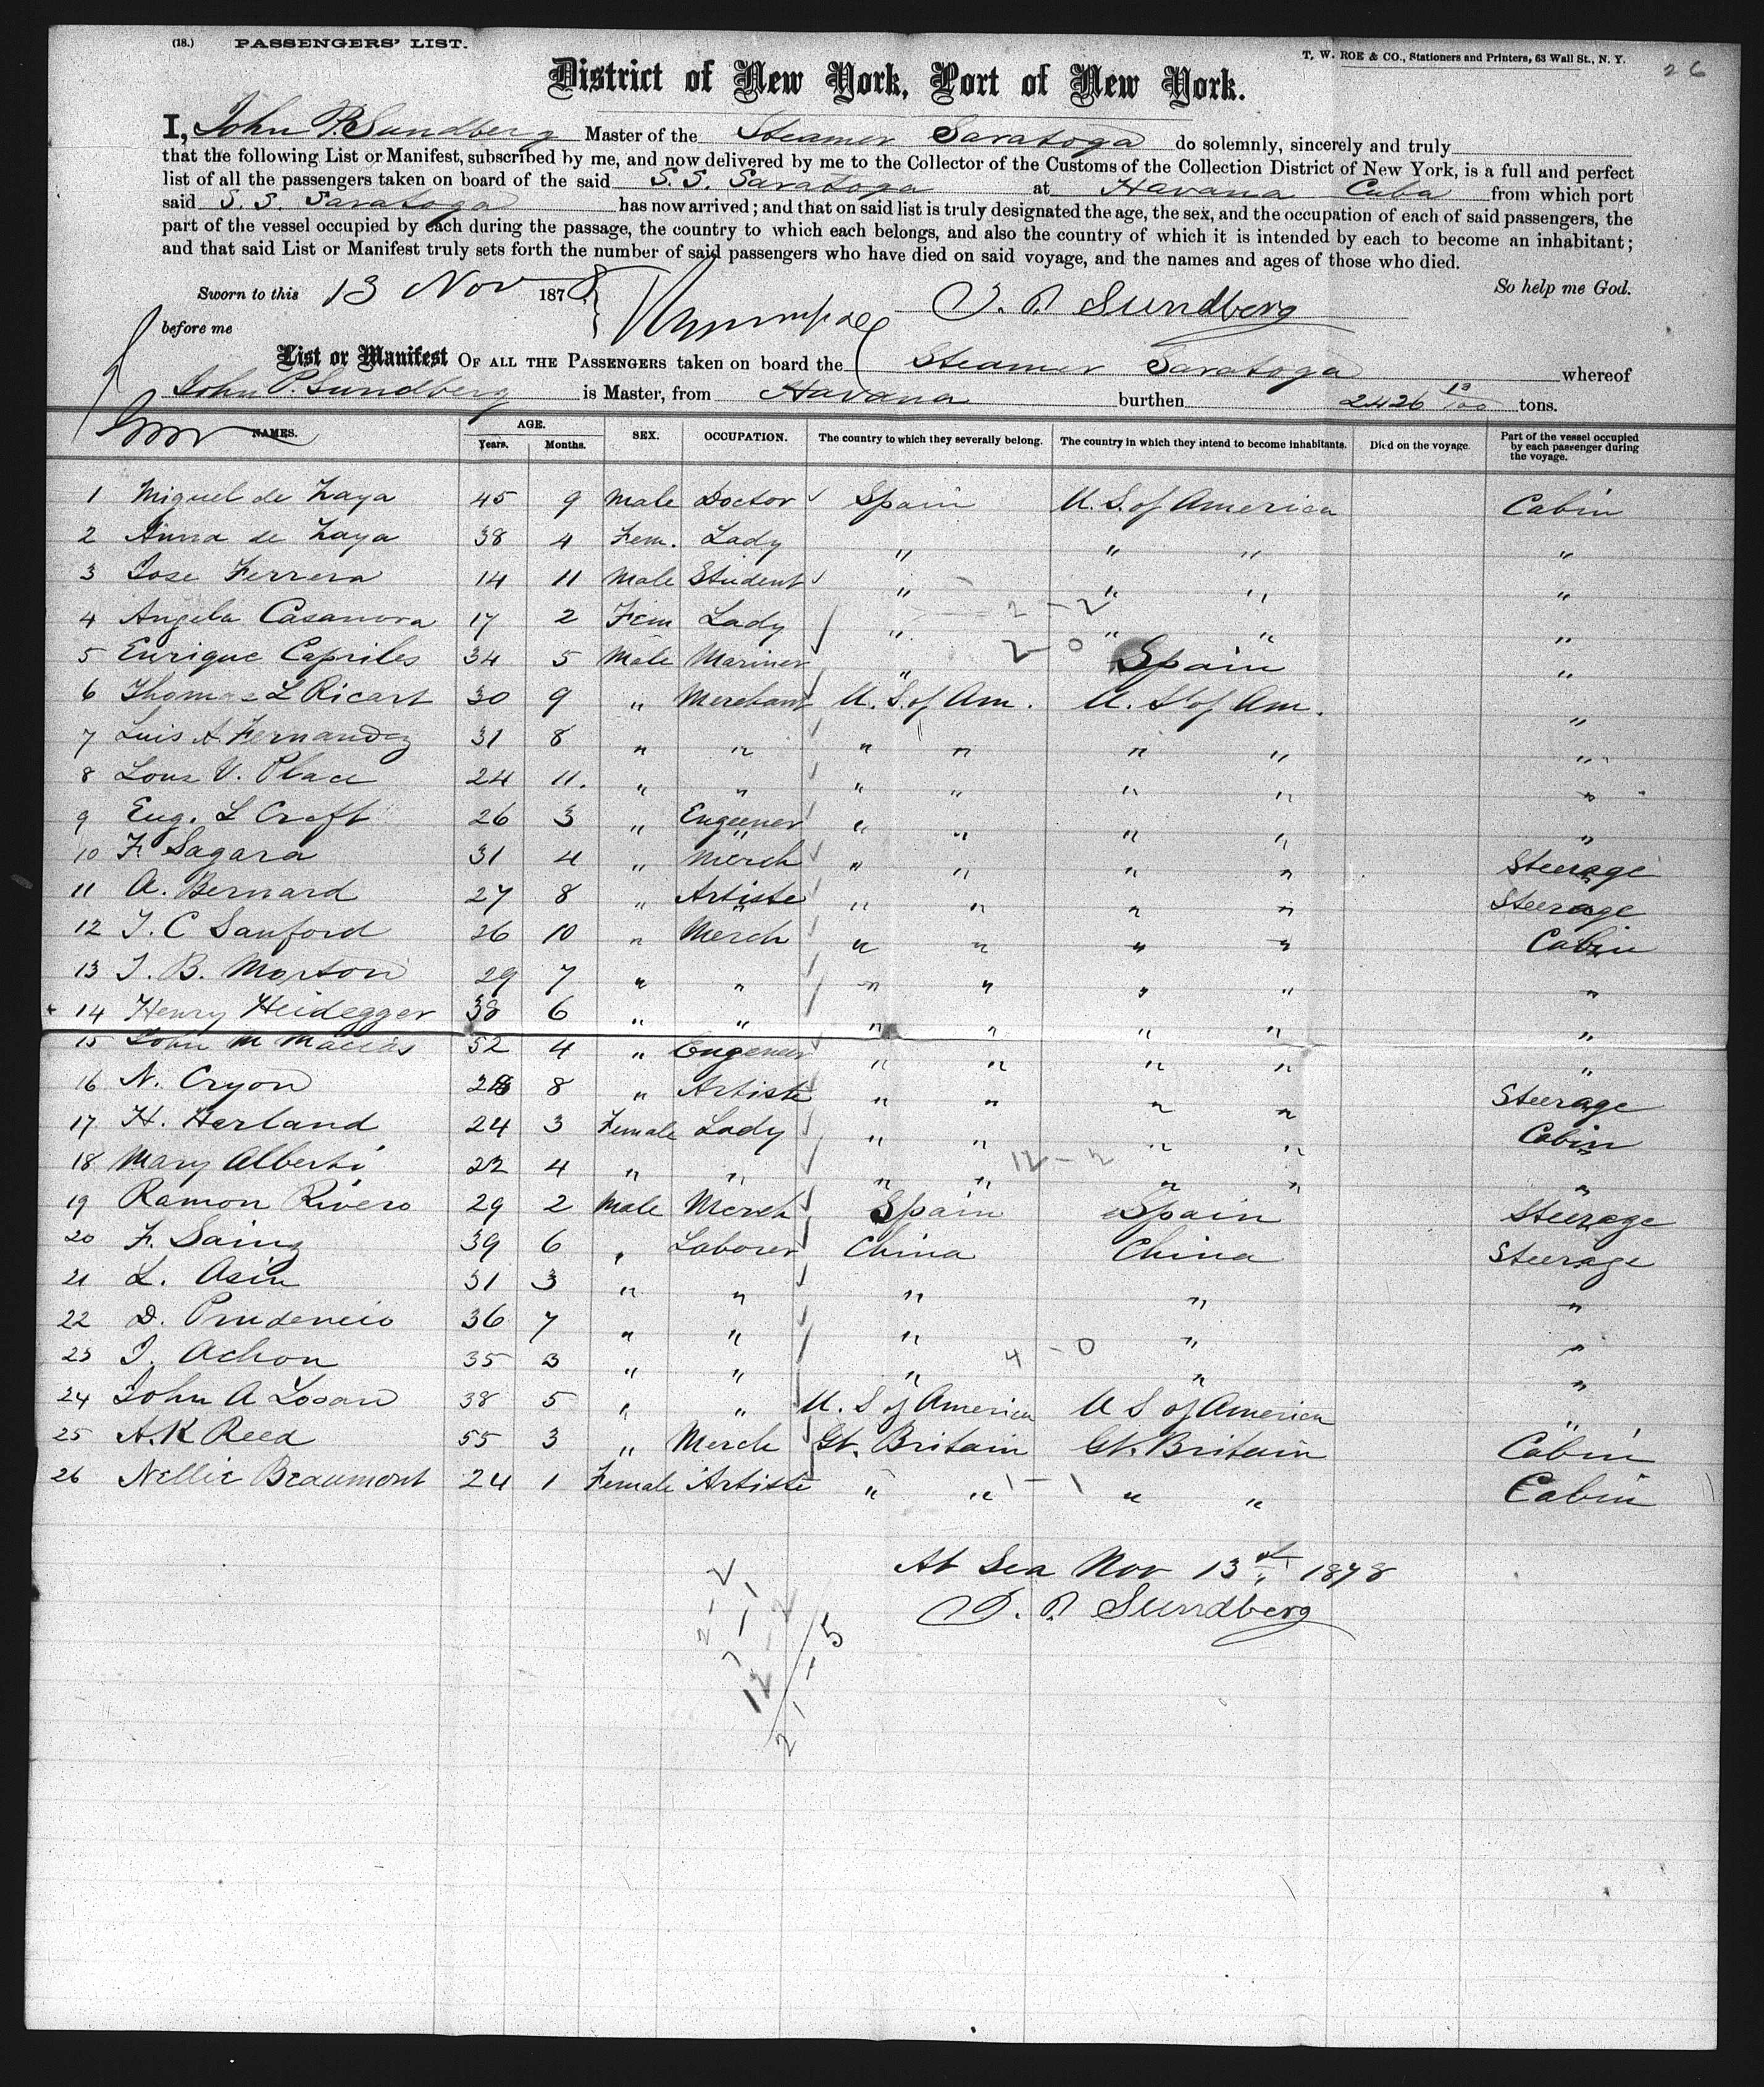 (18.) PASSENGERS' LIST.
T. W. ROE & CO., Stationers and Printers, 63 Wall St., N. Y.
26
District of New York, Port of New York.
I, John P. Sundberg Master of the Steamer Saratoga do solemnly, sincerely and truly
that the following List or Manifest, subscribed by me, and now delivered by me to the Collector of the Customs of the Collection District of New York, is a full and perfect
list of all the passengers taken on board of the said S. S. Saratoga at Havana Cuba from which port
said S. S. Saratoga has now arrived; and that on said list is truly designated the age, the sex, and the occupation of each of said passengers, the
part of the vessel occupied by each during the passage, the country to which each belongs, and also the country of which it is intended by each to become an inhabitant;
and that said List or Manifest truly sets forth the number of said passengers who have died on said voyage, and the names and ages of those who died.
So help me God.
Sworn to this 13 Nov 1878
J. P. Sundberg
before me
List or Manifest OF ALL THE PASSENGERS taken on board the Steamer Saratoga whereof
John P. Sundberg is Master, from Havana burthen 2426 13/100 tons.
NAMES. AGE. Years. Months. SEX. OCCUPATION. The country to which they severally belong. The country in which they intend to become inhabitants. Died on the voyage. Part of the vessel occupied by each passenger during the voyage.
1 Miguel de Zaya 45 9 Male Doctor Spain U. S. of America Cabin
2 Anna de Zaya 38 4 Fem. Lady " " " "
3 Jose Ferrera 14 11 Male Student " " " "
4 Angela Casanova 17 2 Fem Lady " " " "
5 Enrique Capriles 34 5 Male Mariner " Spain "
6 Thomas L Ricart 30 9 " Merchant U. S. of Am. U. S of Am. "
7 Luis A Fernandez 31 8 " " " " " " "
8 Louis V. Place 24 11. " " " " " " "
9 Eug. L Craft 26 3 " Engeener " " " " "
10 F. Sagara 31 4 " Merch " " " " Steerage
11 A. Bernard 27 8 " Artiste " " " " Steerage
12 J. C Sanford 26 10 " Merch " " " " Cabin
13 J. B. Morton 29 7 " " " " " " "
14 Henry Heidegger 38 6 " " " " " " "
15 John M Macias 52 4 " Engeneer " " " " "
16 N. Cryon 28 8 " Artiste " " " " Steerage
17 H. Harland 24 3 Female Lady " " " " Cabin
18 Mary Alberti 22 4 " " " " " " "
19 Ramon Rivero 29 2 Male Merch Spain Spain Steerage
20 F. Sainz 39 6 " Laborer China China Steerage
21 L. Asin 31 3 " " " " "
22 D. Prudencio 36 7 " " " " "
23 J. Achon 35 3 " " " " "
24 John A Logan 38 5 " " U. S of America U S of America "
25 A. K Reed 55 3 " Merch Gt. Britain Gt. Britain Cabin
26 Nellie Beaumont 24 1 Female Artiste " " " " Cabin
At Sea Nov 13th 1878
J. P. Sundberg